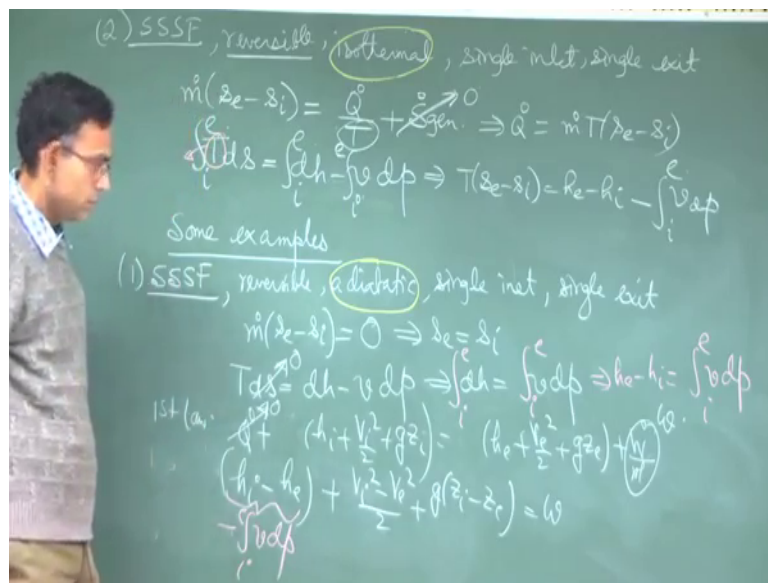 (2) SSSF, reversible, isothermal, single inlet, single exit
ṁ(se-si) = Q̇/T + Ṡgen. → 0 ⇒ Q̇ = ṁT(se-si)
∫ie Tds = ∫ie dh - ∫ie v dp ⇒ T(se-si) = he-hi - ∫ie v dp
Some examples
(1) SSSF, reversible, adiabatic, single inet, single exit
ṁ(se-si) = 0 ⇒ se = si
Tds → 0 = dh - v dp ⇒ ∫ie dh = ∫ie v dp ⇒ he-hi = ∫ie v dp
1st law: → 0 + (hi + Vi²/2 + gzi) = (he + Ve²/2 + gze) + Ẇ/ṁ w.
(hi - he) + (Vi² - Ve²)/2 + g(zi - ze) = w
-∫ie v dp